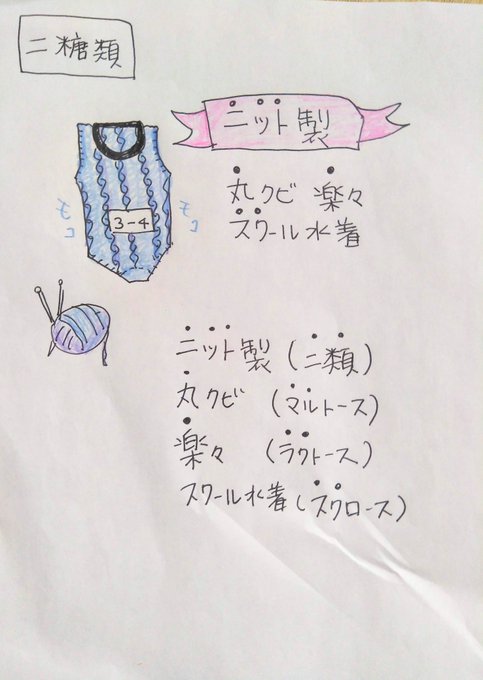 二糖類
ニット製
丸クビ 楽々
スクール水着
モコ
3-4
モコ
ニット製(二類)
丸クビ (マルトース)
楽々 (ラクトース)
スクール水着(スクロース)